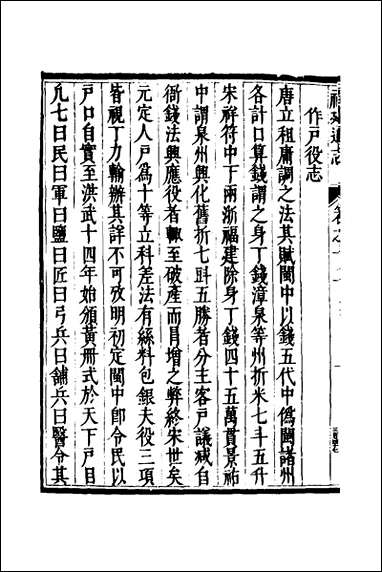 福建通志
卷之十
作戸役志
唐立租庸調之法其賦閩中以錢五代中僞閩諸州
各計口算錢謂之身丁錢漳泉等州折米七斗五升
宋祥符中下兩浙福建除身丁錢四十五萬貫景祐
中謂泉州興化舊折七斗五勝者分主客戸議减自
衙錢法興應役者輙至破產而冐增之弊終宋世矣
元定人戸爲十等立科差法有絲料包銀夫役三項
皆視丁力輸辦其詳不可攷明初定閩中卽令民以
戸口自實至洪武十四年始頒黃冊式於天下戸目
凡七曰民曰軍曰鹽曰匠曰弓兵曰舖兵曰醫令其